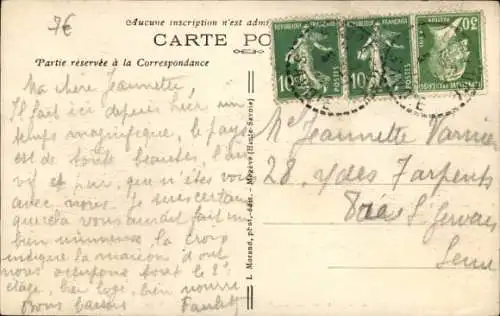 7€
Aucune inscription n'est adm
CARTE PO
Partie réservée à la Correspondance
RÉPUBLIQUE FRANÇAISE
10c
POSTES
RÉPUBLIQUE FRANÇAISE
10c
POSTES
30
PASTEUR
Ma chère Jeannette,
Il fait ici depuis hier un
temps magnifique, le pays
est de toute beauté, l'air
vif et pur, que n'êtes vous
avec nous. Je suis certain
que cela vous aurait fait un
bien immense, la croix
indique la maison dont
nous occupons tout le 2e
étage, bien logé, bien nourri
Bons baisers
L. Morand, phot.-édit. - Megève (Haute-Savoie)
Jeannette
28, des Arpents
St Gervais
Seine